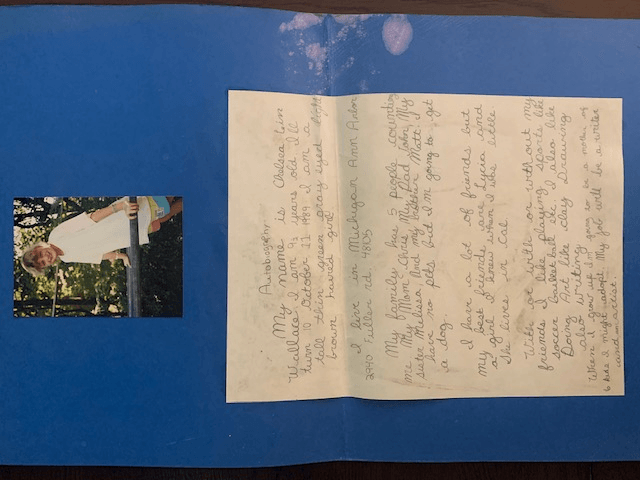 Autobiography
My name is Chelsea Erin
Wallace I am 9½ years old I'll
turn 10 October 11 1989 I am a
tall thin green gray eyed light
brown haired girl
I live in Michigan Ann Arbor
2940 Fuller rd. 48105
My family has 5 people counting
me My Mom Chris My Dad John My
sister Melissa And my brother Matt I
have no pets but I'm going to get
a dog.
I have a lot of friends but
my best friends are Lycia and
a girl I knew when I was little
She lives in Cal
With or with or without my
friends I like playing sports like
soccer basket ball etc. I also like
Doing Art like clay Drawing
also writing
When I grow up I'm going to be a mother of
6 kids I might adopt My job will be a writer
and an artist